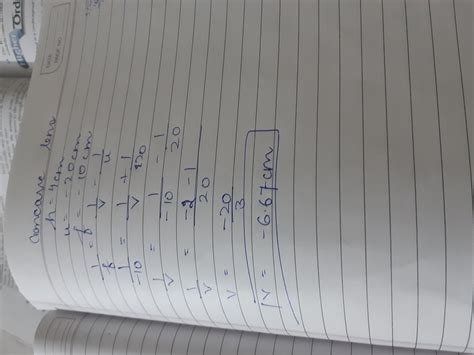 Concave lens
h = 4cm
u = -20cm
f = -10cm
1/f = 1/v - 1/u
1/-10 = 1/v + 1/20
1/v = 1/-10 - 1/20
1/v = -2-1/20
v = -20/3
v = -6.67cm